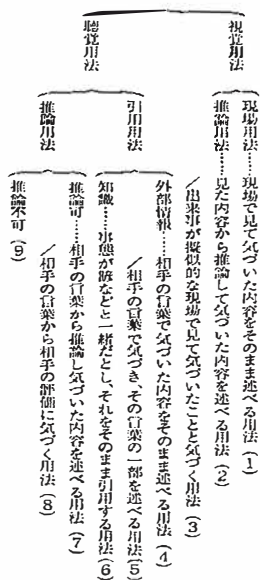 視覚用法
現場用法……現場で見て気づいた内容をそのまま述べる用法（1）
推論用法……見た内容から推論して気づいた内容を述べる用法（2）
／出来事が擬似的な現場で見て気づいたことと気づく用法（3）
聴覚用法
引用用法
外部情報……相手の言葉で気づいた内容をそのまま述べる用法（4）
／相手の言葉で気づき、その言葉の一部を述べる用法（5）
知識……事態が諺などと一緒だとし、それをそのまま引用する用法（6）
推論用法
推論可……相手の言葉から推論し気づいた内容を述べる用法（7）
／相手の言葉から相手の評価に気づく用法（8）
推論不可（9）